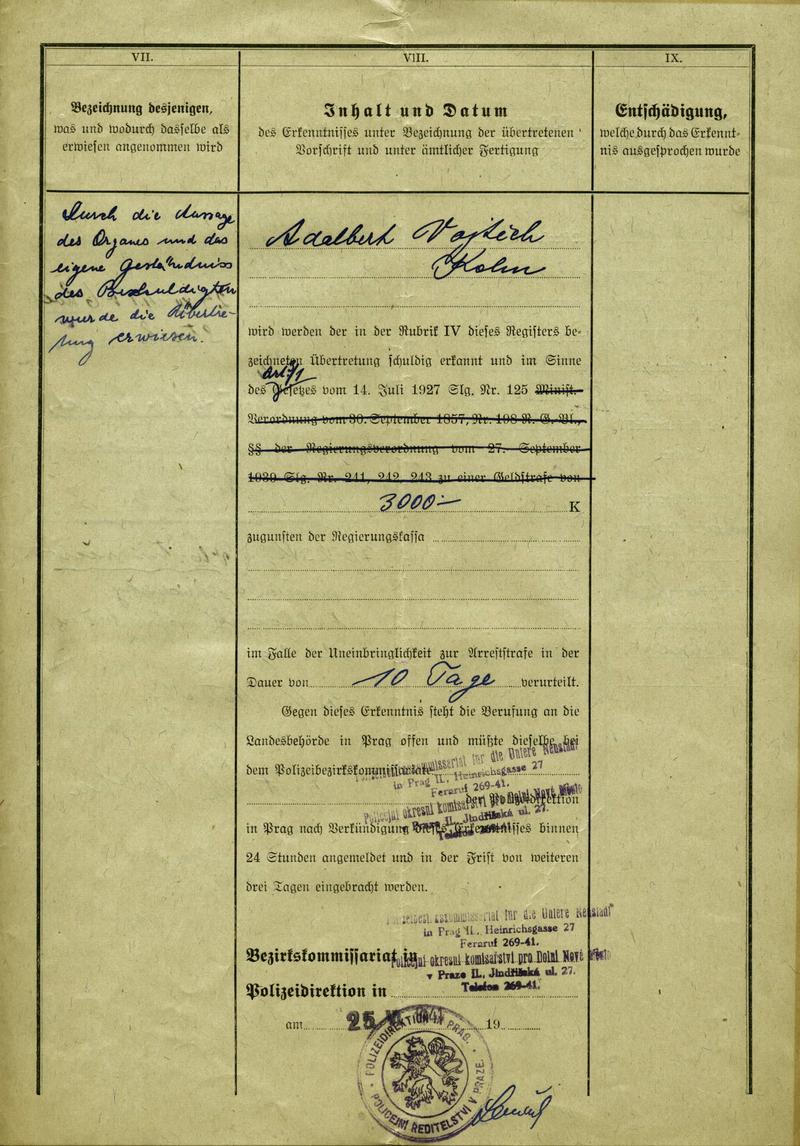 VII.
Bezeichnung desjenigen,
was und wodurch dasselbe als
erwiesen angenommen wird
Durch die Anzeige
des Organs und das
eigene Geständniss
des Beschuldigten
wurde die Übertre-
tung erwiesen.
VIII.
Inhalt und Datum
des Erkenntnisses unter Bezeichnung der übertretenen
Vorschrift und unter ämtlicher Fertigung
Adalbert Vojtěch
Kohn
wird werden der in der Rubrik IV dieses Registers be-
zeichneten Übertretung schuldig erkannt und im Sinne
Art. 1
des Gesetzes vom 14. Juli 1927 Slg. Nr. 125 Minist.-
Verordnung vom 30. September 1857, Nr. 198 R. G. Bl.,
§§ der Regierungsverordnung vom 27. September
1939 Slg. Nr. 241, 242, 243 zu einer Geldstrafe von
3000·— K
zugunsten der Regierungskassa
im Falle der Uneinbringlichkeit zur Arreststrafe in der
Dauer von 10 Tage verurteilt.
Gegen dieses Erkenntnis steht die Berufung an die
Landesbehörde in Prag offen und müßte dieselbe bei
dem Polizeibezirkskommissariate
für die Untere Neustadt
in Prag II., Heinrichsgasse 27
Fernruf 269-41.
der Polizeidirektion
Policejní okresní komisařství pro Dolní Nové Město
v Praze II., Jindřišská ul. 27.
Telefon
in Prag nach Verkündigung dieses Erkenntnisses binnen
24 Stunden angemeldet und in der Frist von weiteren
drei Tagen eingebracht werden.
für die Untere Neustadt
in Prag II., Heinrichsgasse 27
Fernruf 269-41.
Bezirkskommissariat in
Policejní okresní komisařství pro Dolní Nové Město
v Praze II., Jindřišská ul. 27.
Telefon 269-41.
Polizeidirektion in
am 25 19
POLIZEIDIREKTION IN PRAG.
POLICEJNÍ ŘEDITELSTVÍ V PRAZE.
IX.
Entschädigung,
welche durch das Erkennt-
nis ausgesprochen wurde